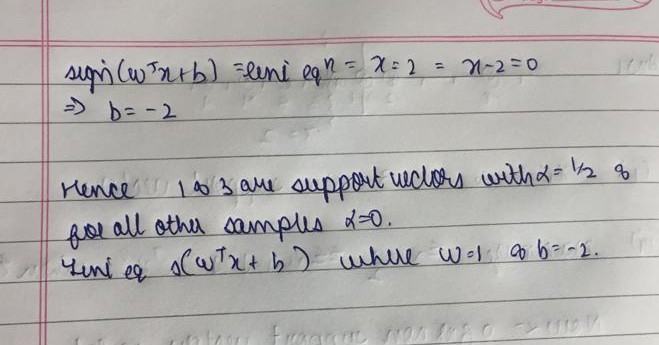 sign(wᵀx+b) = line eqⁿ = x=2 = x-2=0
⇒ b = -2
Hence 1 & 3 are support vectors with α = 1/2 &
for all other samples α=0.
Line eq s(wᵀx + b) where w=1 & b=-2.